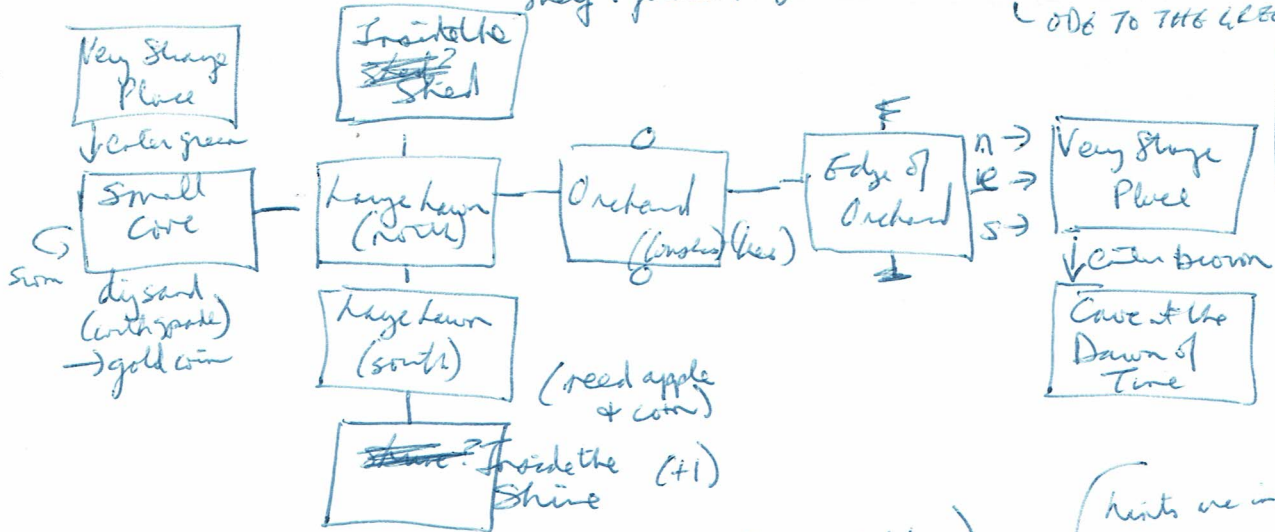 ODE TO THE
Very Strange
Place
↓ enter green
Small
Cove
swim
dig sand
(with spade)
→ gold coin
Inside the
Shed
Large Lawn
(north)
Large Lawn
(south)
Inside the
Shrine
(+1)
(need apple
& coin)
Orchard
Edge of
Orchard
n →
e →
s →
Very Strange
Place
↓ enter brown
Cave at the
Dawn of
Time
hints are in